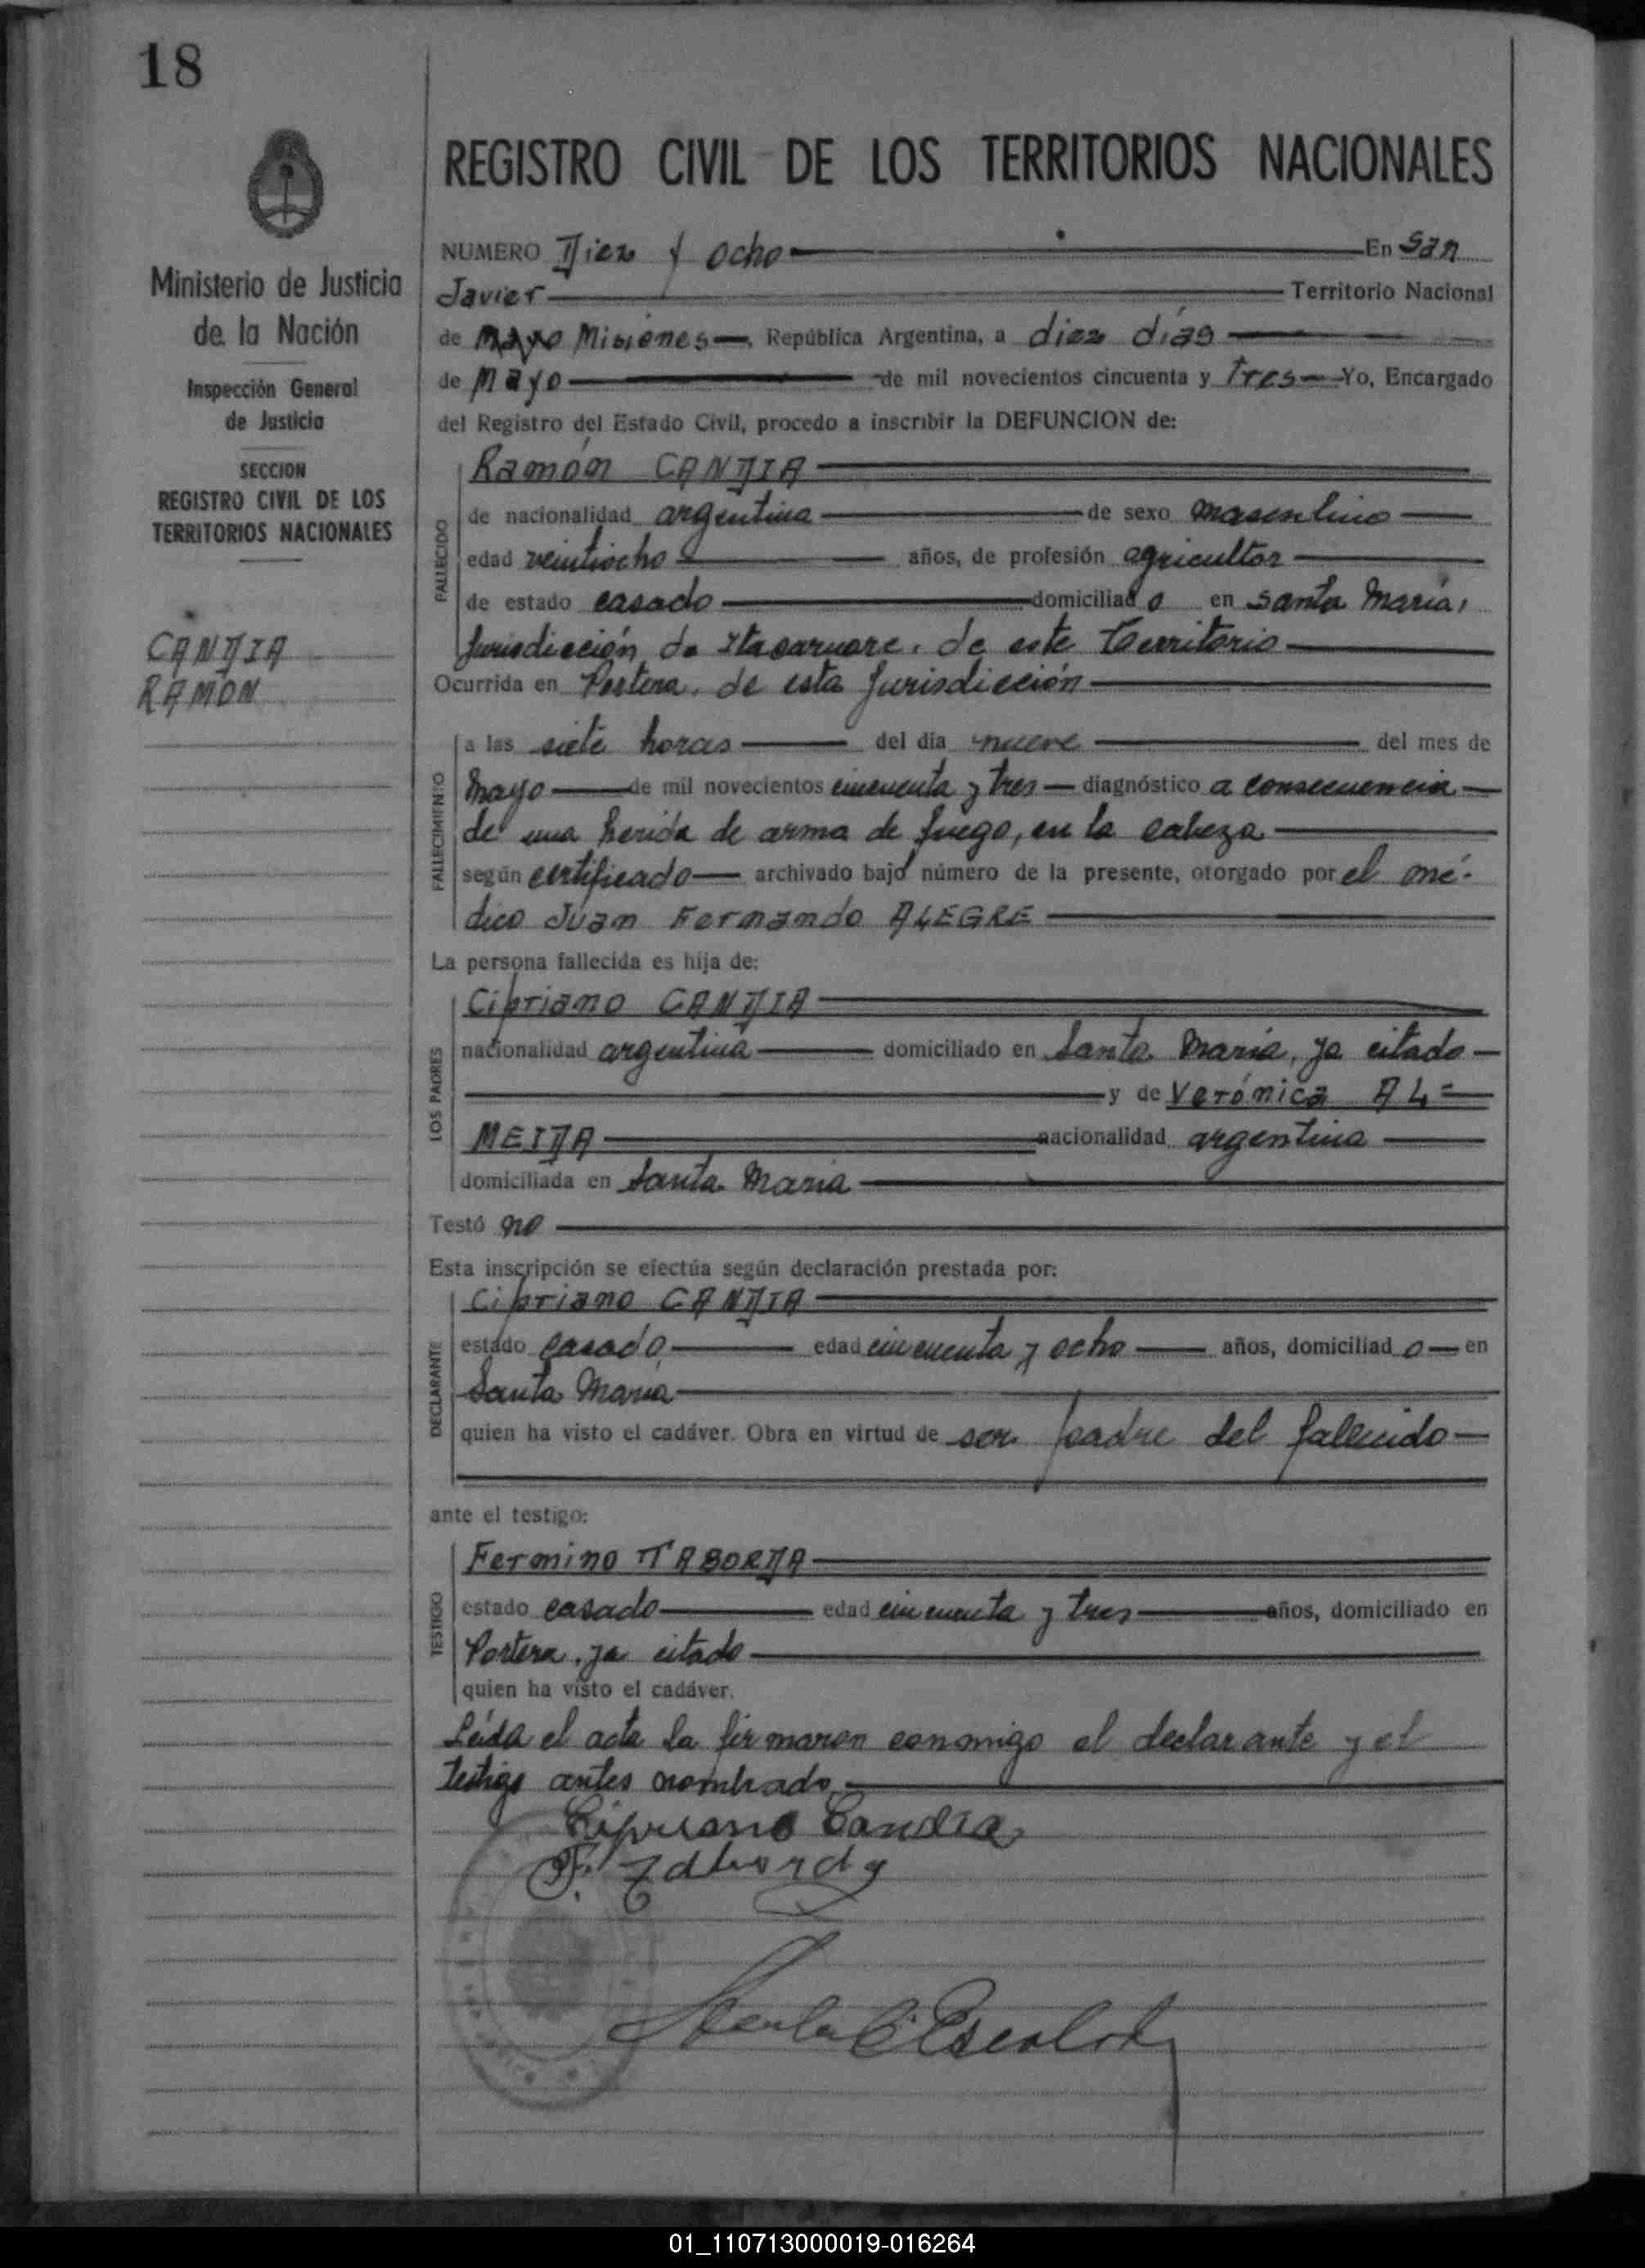 18
REGISTRO CIVIL DE LOS TERRITORIOS NACIONALES
Ministerio de Justicia
de la Nación
Inspección General
de Justicia
SECCION
REGISTRO CIVIL DE LOS
TERRITORIOS NACIONALES
CANDIA
RAMÓN
NUMERO Diez y ocho En San
Javier Territorio Nacional
de mayo Misiones, República Argentina, a diez días
de mayo de mil novecientos cincuenta y tres Yo, Encargado
del Registro del Estado Civil, procedo a inscribir la DEFUNCION de:
FALLECIDO
Ramón CANDIA
de nacionalidad argentina de sexo masculino
edad veintiocho años, de profesión agricultor
de estado casado domiciliado en Santa María,
Jurisdicción de Itacaruare, de este Territorio
Ocurrida en Portera, de esta Jurisdicción
FALLECIMIENTO
a las siete horas del día nueve del mes de
Mayo de mil novecientos cincuenta y tres diagnóstico a consecuencia
de una herida de arma de fuego, en la cabeza
según certificado archivado bajo número de la presente, otorgado por el mé-
dico Juan Fernando ALEGRE
La persona fallecida es hija de:
LOS PADRES
Cipriano CANDIA
nacionalidad argentina domiciliado en Santa María, ya citado
y de Verónica AL=
MEIDA nacionalidad argentina
domiciliada en Santa María
Testó no
Esta inscripción se efectúa según declaración prestada por:
DECLARANTE
Cipriano CANDIA
estado casado edad cincuenta y ocho años, domiciliado en
Santa María
quien ha visto el cadáver. Obra en virtud de ser padre del fallecido
ante el testigo:
TESTIGO
Fermino TABORDA
estado casado edad cincuenta y tres años, domiciliado en
Portera, ya citado
quien ha visto el cadáver.
Leída el acta la firmaron conmigo el declarante y el
testigo antes nombrado
Cipriano Candia
01_110713000019-016264